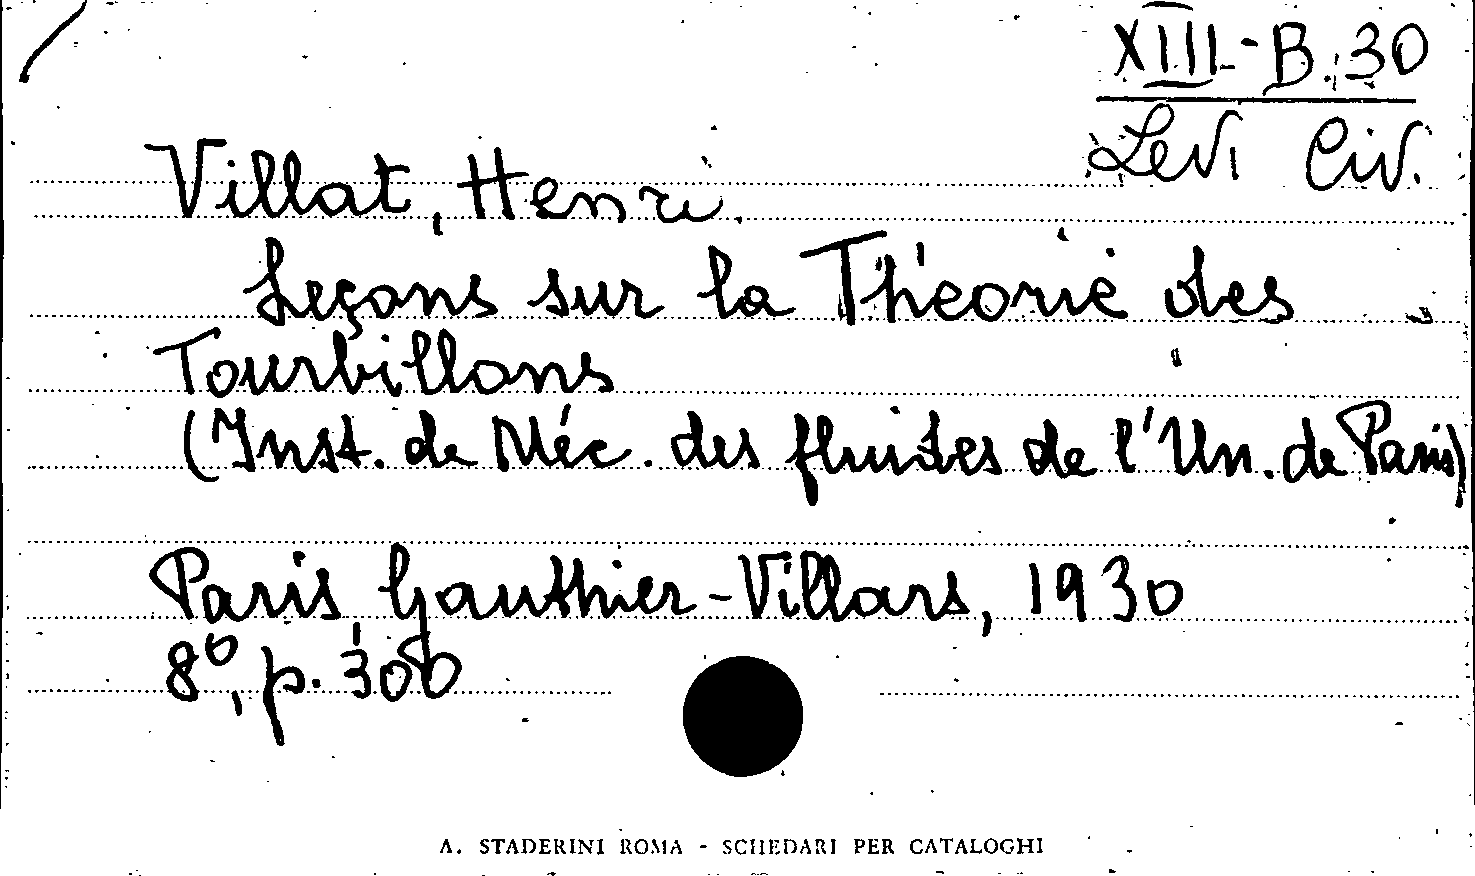 XIII-B.30
Levi Civ.
Villat, Henri.
Leçons sur la Théorie des
Tourbillons
(Inst. de Méc. des fluides de l'Un. de Paris)
Paris, Gauthier-Villars, 1930
8°, p. 300
A. STADERINI ROMA - SCHEDARI PER CATALOGHI